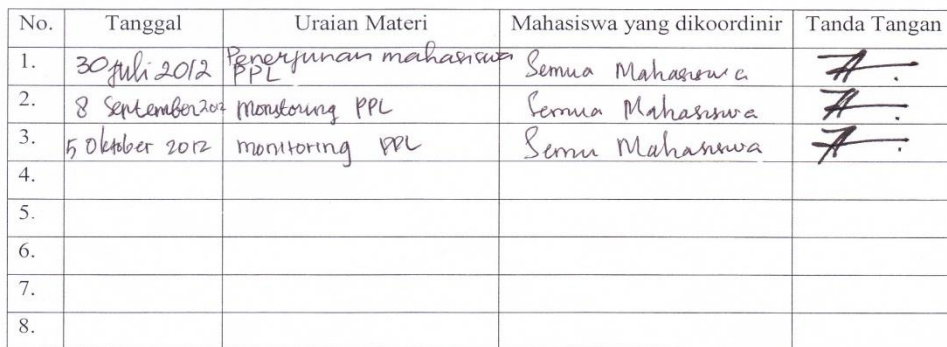 No. Tanggal Uraian Materi Mahasiswa yang dikoordinir Tanda Tangan
1. 30 Juli 2012 Penerjunan mahasiswa PPL Semua Mahasiswa
2. 8 September 2012 Monitoring PPL Semua Mahasiswa
3. 5 Oktober 2012 monitoring PPL Semu Mahasiswa
4.
5.
6.
7.
8.